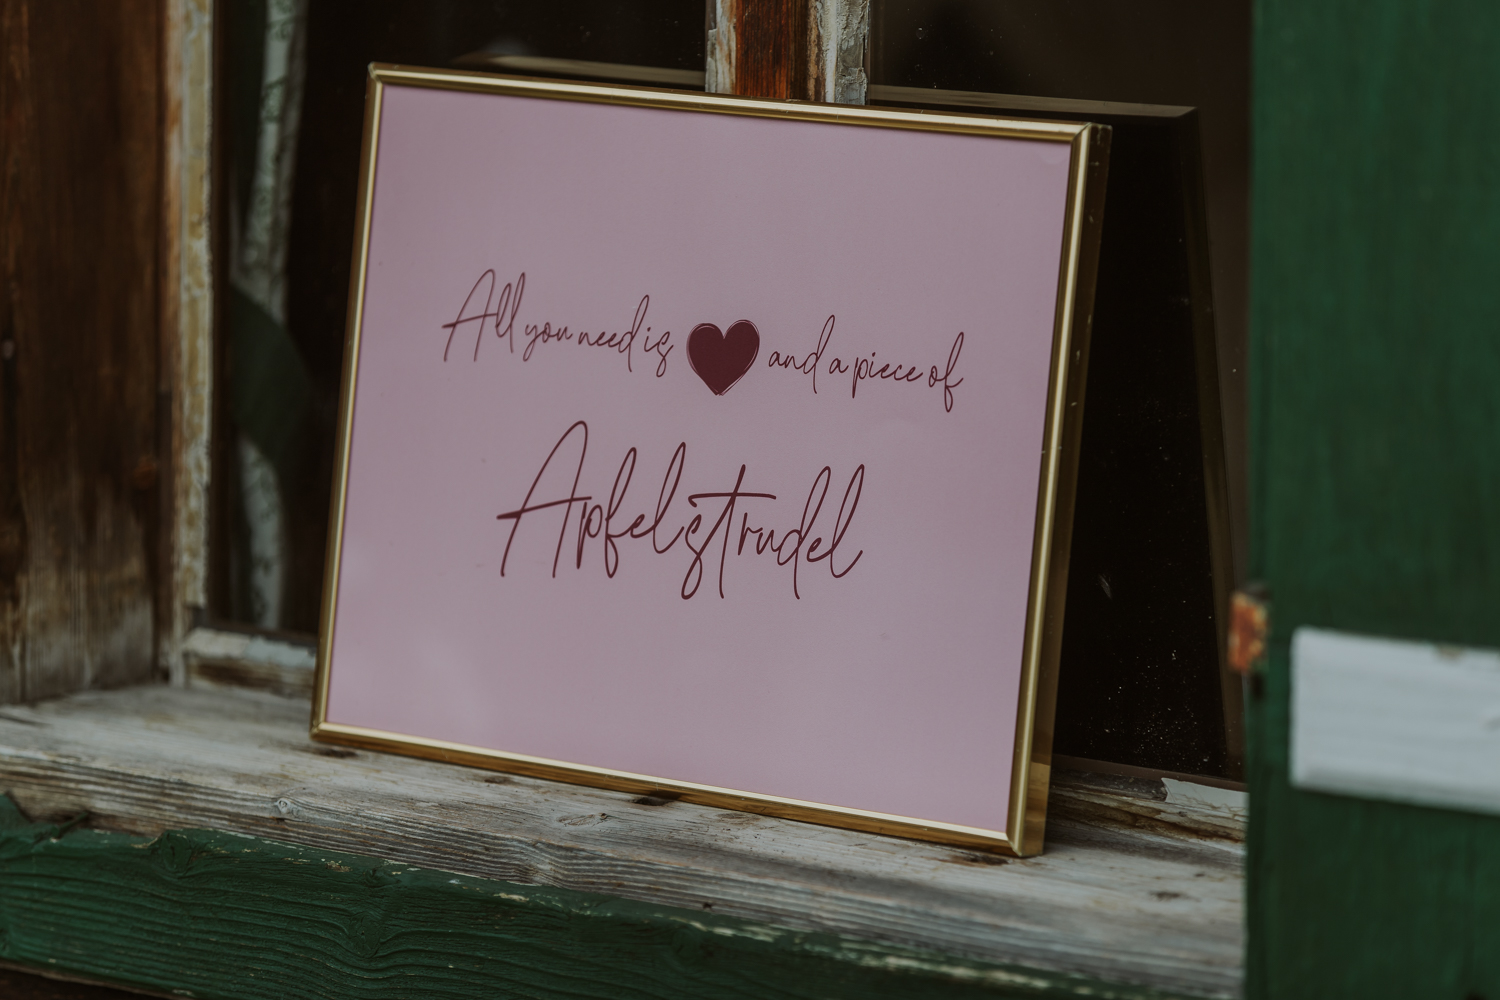 All you need is ♥ and a piece of
Apfelstrudel